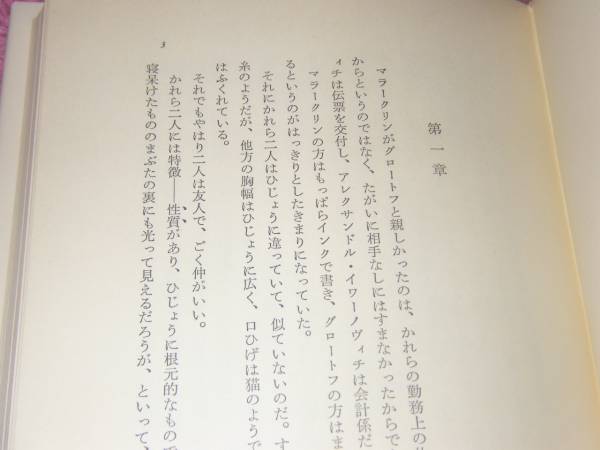 第一章
マラークリンがグロートフと親しかったのは、かれらの勤務上の
からというのではなく、たがいに相手なしにはすまなかったからで
ィチは伝票を交付し、アレクサンドル・イワーノヴィチは会計係だ
マラークリンの方はもっぱらインクで書き、グロートフの方はま
るというのがはっきりとしたきまりになっていた。
それにかれら二人はひじょうに違っていて、似ていないのだ。す
糸のようだが、他方の胸幅はひじょうに広く、口ひげは猫のようで
はふくれている。
それでもやはり二人は友人で、ごく仲がいい。
かれら二人には特徴――性質があり、ひじょうに根元的なもので
寝呆けたもののまぶたの裏にも光って見えるだろうが、といって、
3